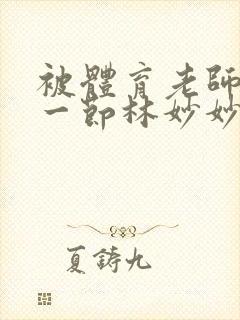 被體育老師
一節林妙妙
夏鑄九